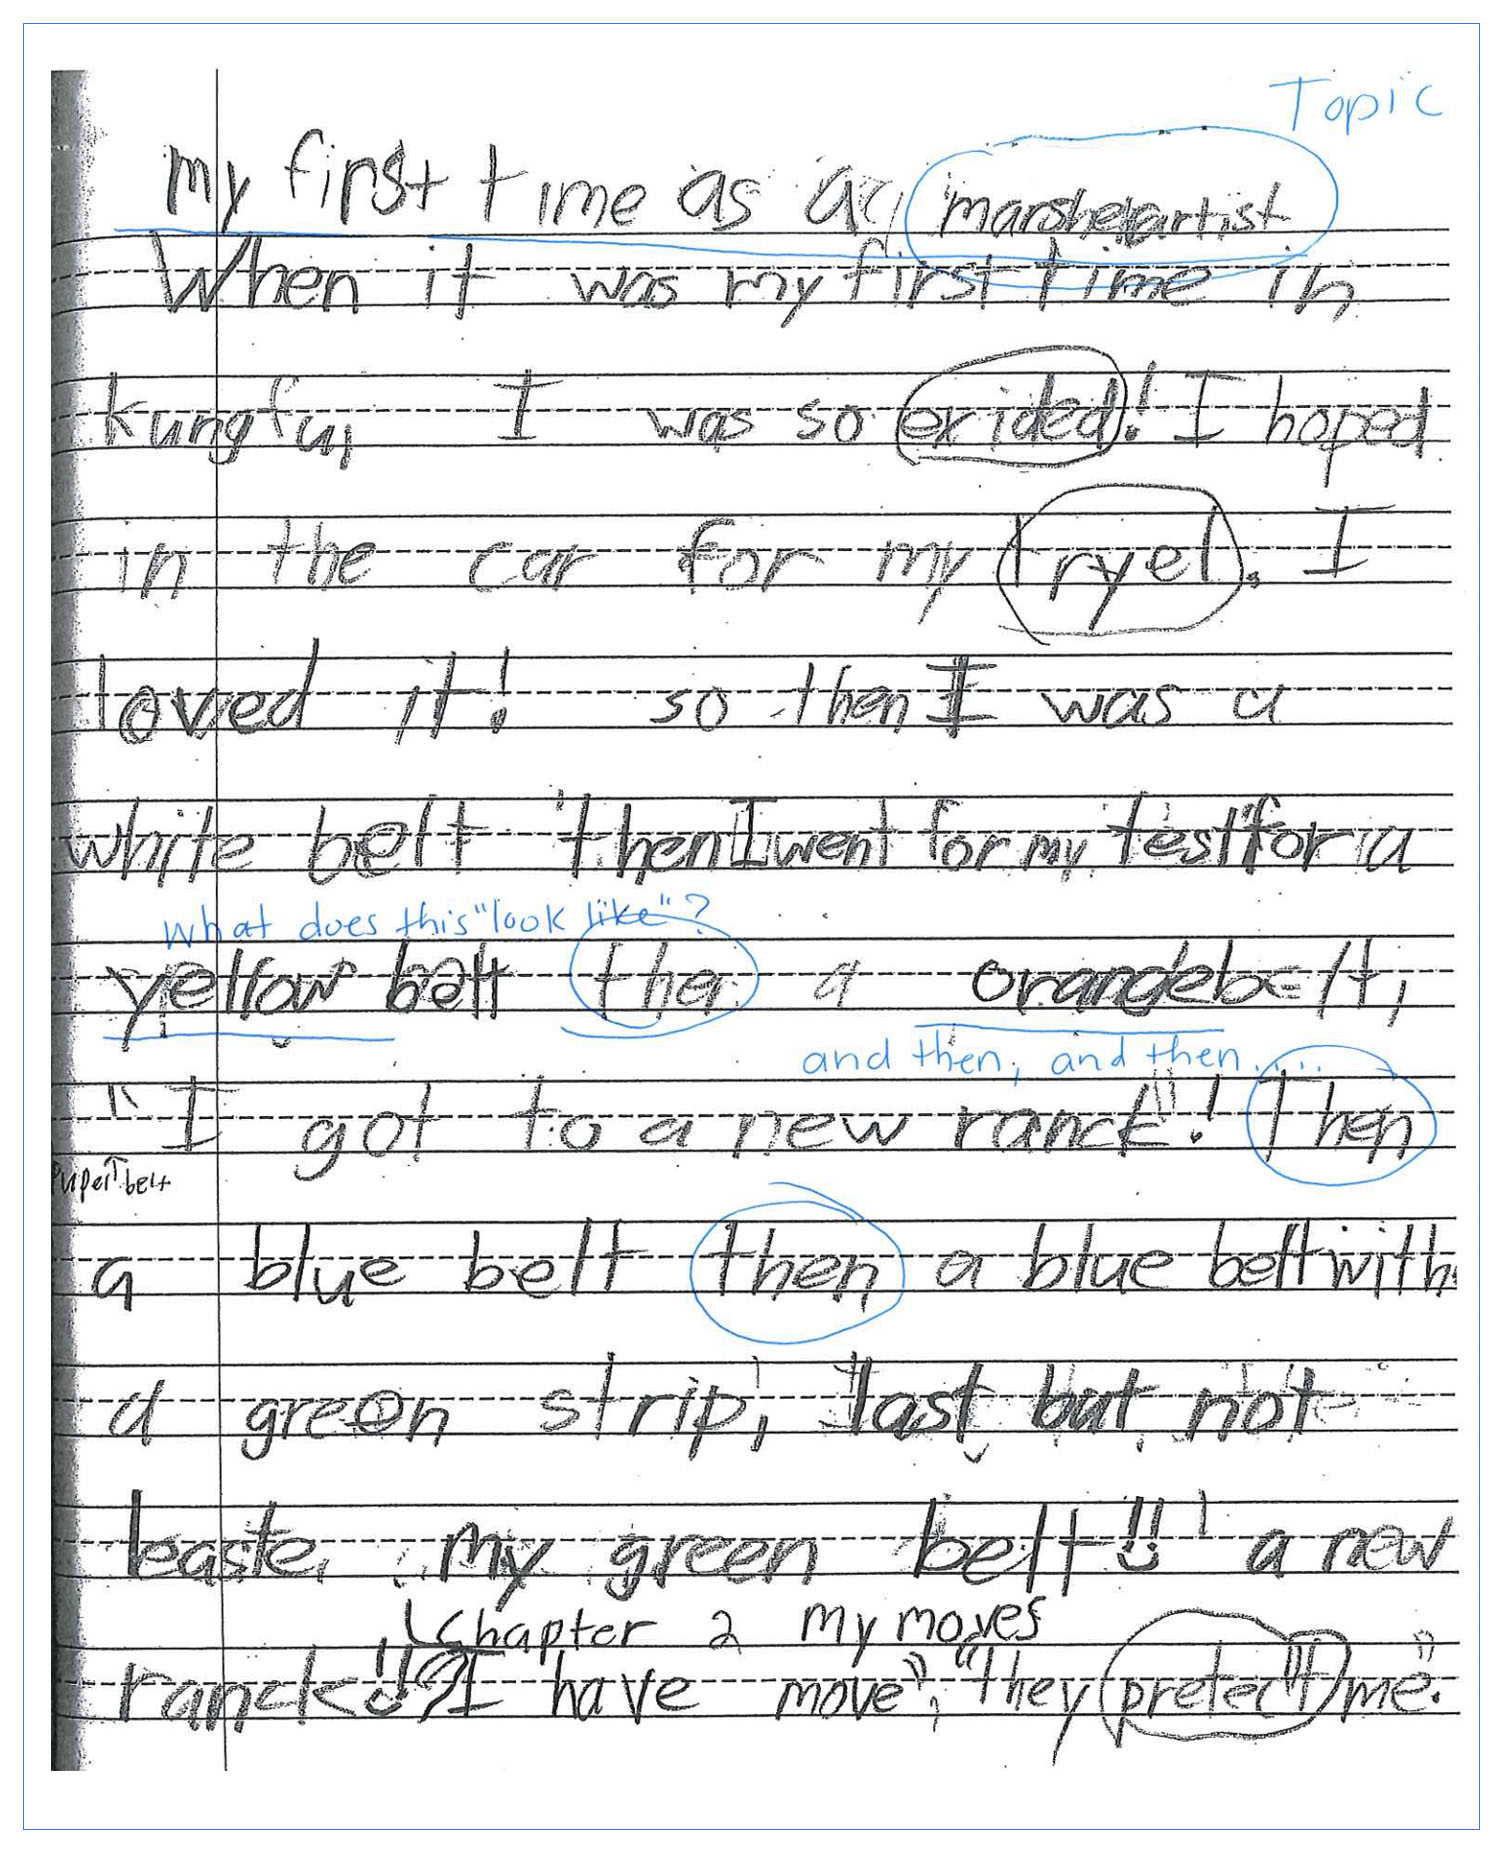 Topic
my first time as a marshelartist
When it was my first time in
kungfu, I was so exided! I hoped
in the car for my tryel. I
loved it! so then I was a
white belt then I went for my test for a
what does this "look like"?
yellow belt then a orange belt,
and then, and then.....
"I got to a new ranck"! Then
belt
a blue belt then a blue belt with
a green strip, last but not
leaste, my green belt!! a new
Chapter 2 my moves
ranck!! I have "move", "they pretect me."